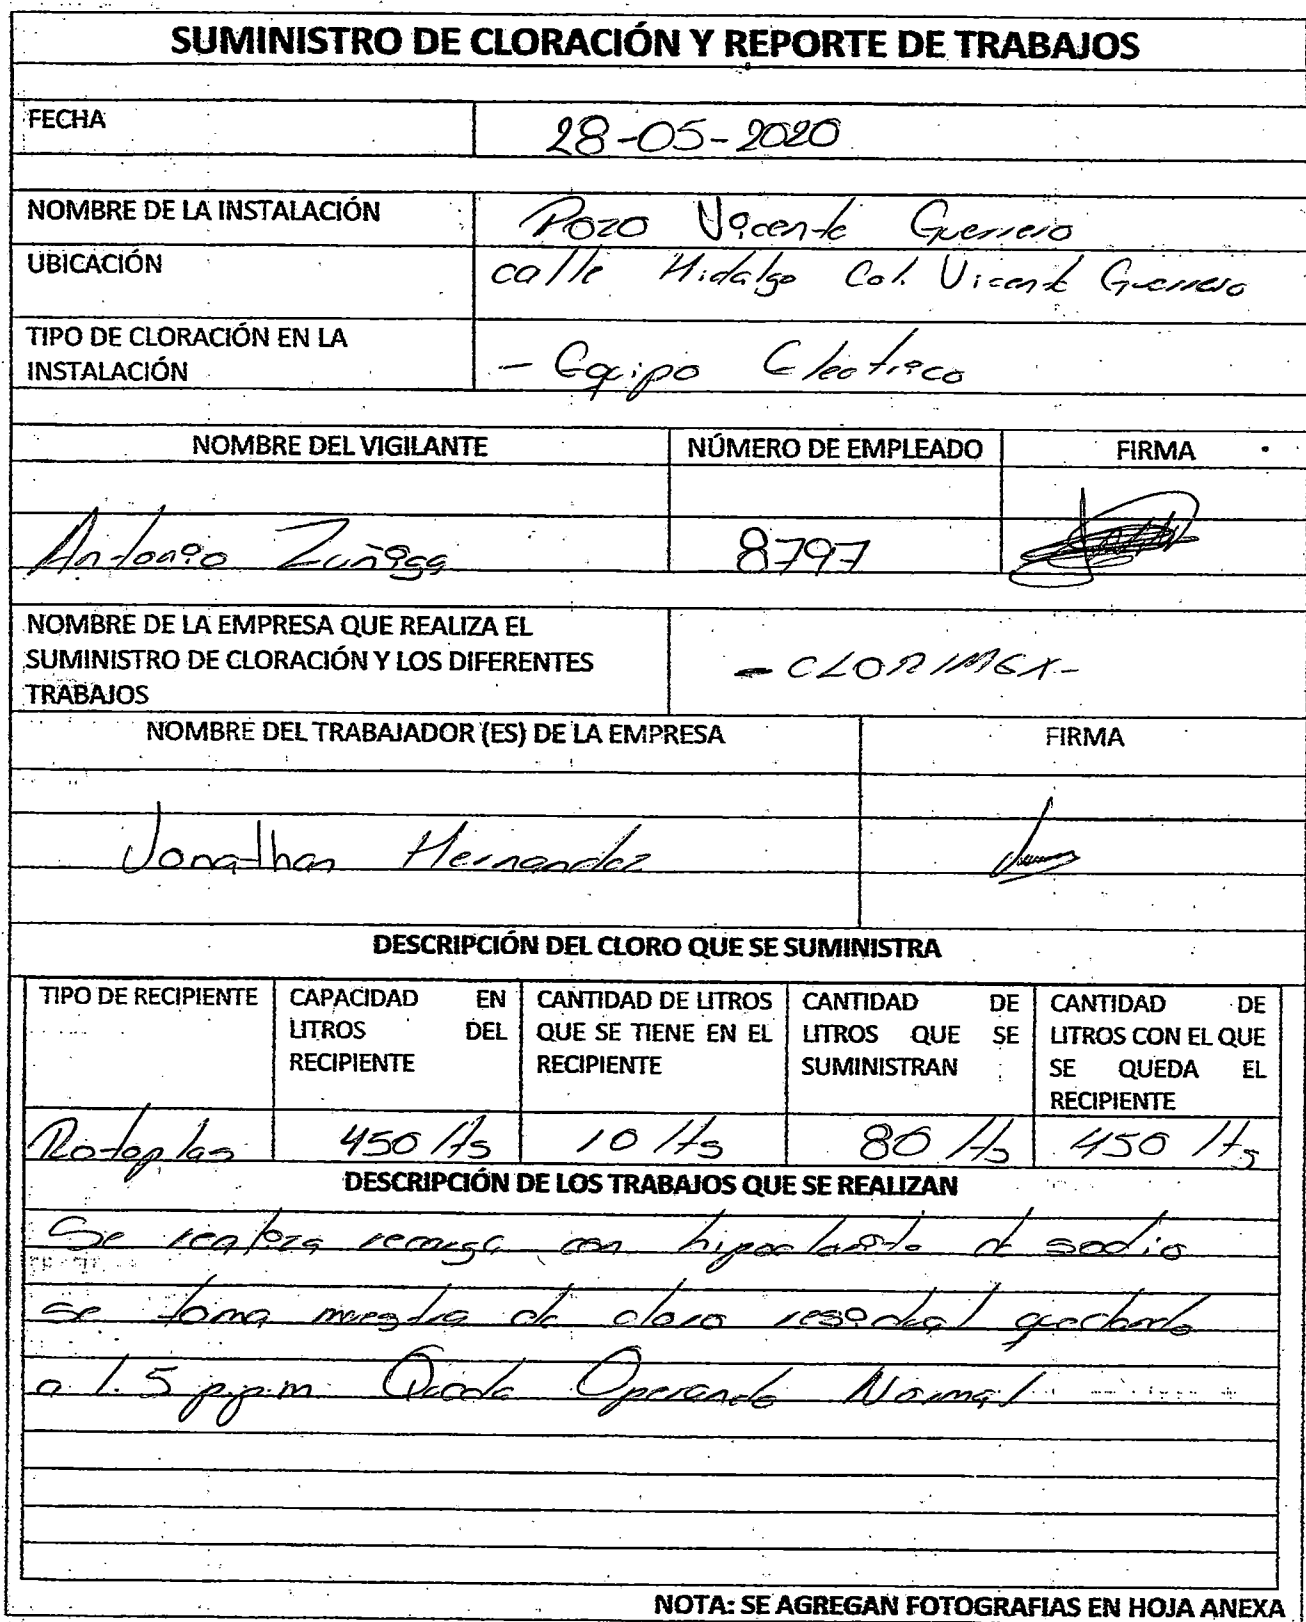 SUMINISTRO DE CLORACIÓN Y REPORTE DE TRABAJOS
FECHA 28-05-2020
NOMBRE DE LA INSTALACIÓN Pozo Vicente Guerrero
UBICACIÓN calle Hidalgo Col. Vicent Guerrero
TIPO DE CLORACIÓN EN LA
INSTALACIÓN - Equipo Electrico
NOMBRE DEL VIGILANTE NÚMERO DE EMPLEADO FIRMA
Antonio Zuñiga 8797
NOMBRE DE LA EMPRESA QUE REALIZA EL
SUMINISTRO DE CLORACIÓN Y LOS DIFERENTES
TRABAJOS
- CLORIMEX -
NOMBRE DEL TRABAJADOR (ES) DE LA EMPRESA FIRMA
Jonathan Hernandez
DESCRIPCIÓN DEL CLORO QUE SE SUMINISTRA
TIPO DE RECIPIENTE
CAPACIDAD EN
LITROS DEL
RECIPIENTE
CANTIDAD DE LITROS
QUE SE TIENE EN EL
RECIPIENTE
CANTIDAD DE
LITROS QUE SE
SUMINISTRAN
CANTIDAD DE
LITROS CON EL QUE
SE QUEDA EL
RECIPIENTE
Rotoplas 450 lts 10 lts 80 lts 450 lts
DESCRIPCIÓN DE LOS TRABAJOS QUE SE REALIZAN
Se realiza recarga con hipoclorito d sodio
se toma muestra de cloro residual quedando
a 1.5 p.p.m Queda Operando Normal
NOTA: SE AGREGAN FOTOGRAFIAS EN HOJA ANEXA